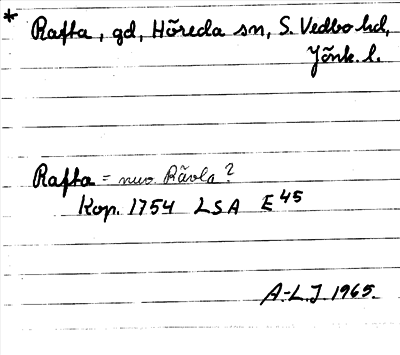 * Rafta, gd, Höreda sn, S. Vedbo hd,
Jönk. l.
Rafta = nuv. Rävla?
Kop. 1754 LSA E 45
A-L.J. 1965.